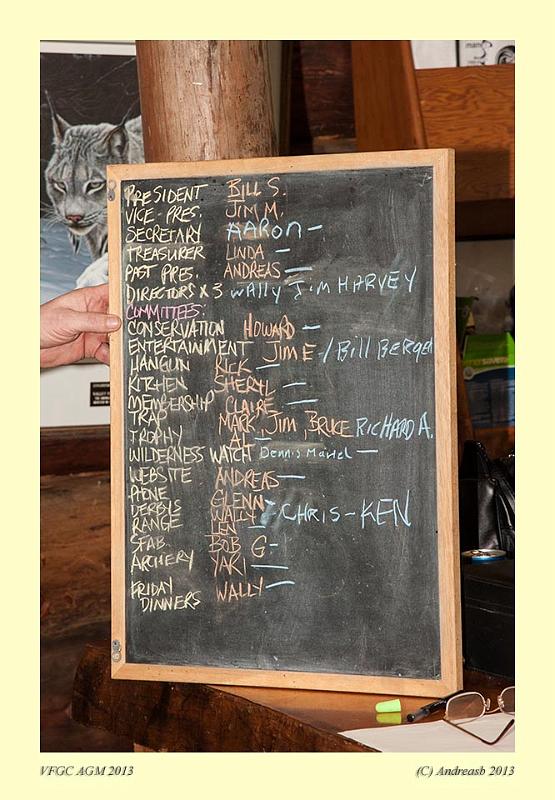 PRESIDENT BILL S.
VICE-PRES. JIM M.
SECRETARY AARON -
TREASURER LINDA -
PAST PRES. ANDREAS -
DIRECTORS X 3 WALLY JIM HARVEY
COMMITTEES:
CONSERVATION HOWARD -
ENTERTAINMENT JIM E -/Bill BERGEN
HANGUN RICK -
KITCHEN SHERYL -
MEMBERSHIP CLAIRE -
TRAP MARK, JIM, BRUCE RICHARD A.
TROPHY AL -
WILDERNESS WATCH Dennis -
WEBSITE ANDREAS -
PHONE GLENN
DERBYS WALLY > CHRIS - KEN
RANGE LEN -
SFAB BOB G -
ARCHERY YAKI -
FRIDAY DINNERS WALLY -
VFGC AGM 2013
(C) Andreasb 2013